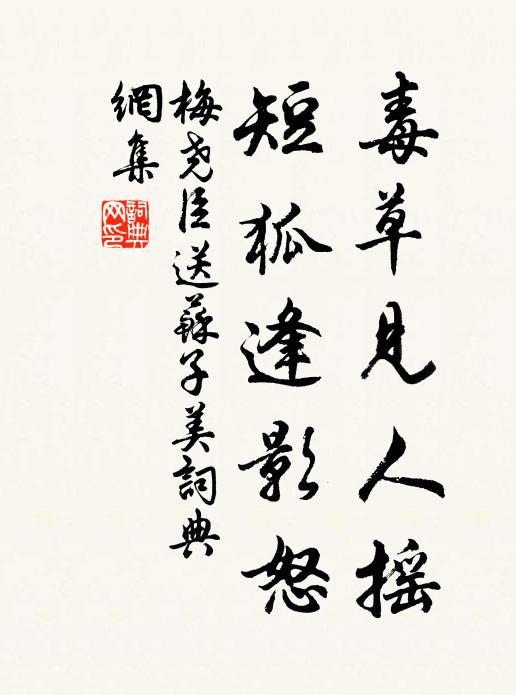 毒草見人摇
短狐逢影怒
梅尧臣送蘇子美詞典
網集
詞典
网印